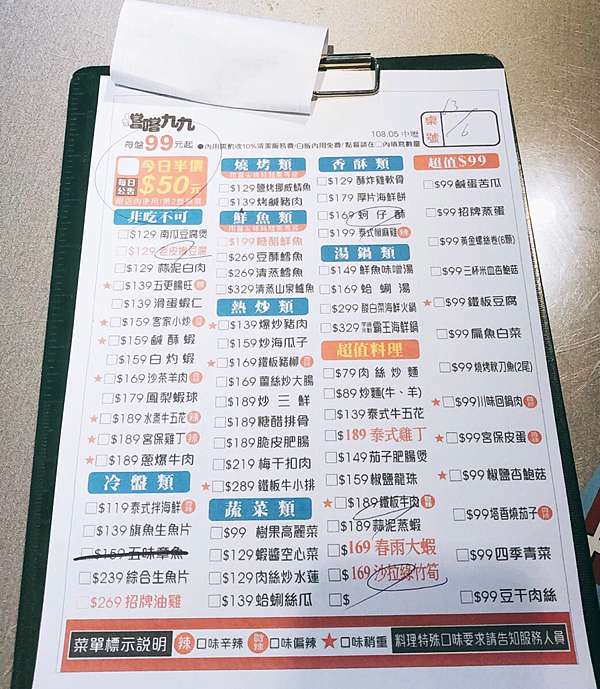 嚐嚐九九
每盤99元起
108.05 中壢
●內用需酌收10%清潔服務費/白飯內用免費/點餐請在□內填寫數量
桌號
13/6
每日公告
今日半價
$50元
非吃不可
□$129 南瓜豆腐煲
□$129 老皮嫩豆腐
□$129 蒜泥白肉
★□$139 五更腸旺 辣
□$139 滑蛋蝦仁
★□$159 客家小炒
★□$159 鹹酥蝦
□$159 白灼蝦
★□$169 沙茶羊肉
□$179 鳳梨蝦球
★□$189 水煮牛五花 辣
★□$189 宮保雞丁 辣
★□$189 蔥爆牛肉
冷盤類
□$119 泰式拌海鮮
□$139 旗魚生魚片
□$159 五味章魚
□$239 綜合生魚片
□$269 招牌油雞
燒烤類
□$129 鹽烤挪威鯖魚
□$139 烤鹹豬肉
鮮魚類
□$199 糖醋鮮魚
□$269 豆酥鱈魚
□$269 清蒸鱈魚
□$329 清蒸山泉鱸魚
熱炒類
★□$139 爆炒豬肉
□$159 炒海瓜子
★□$169 鐵板豬柳
□$169 薑絲炒大腸
□$189 炒三鮮
□$189 糖醋排骨
□$189 脆皮肥腸
□$219 梅干扣肉
★□$289 鐵板牛小排
蔬菜類
□$99 樹果高麗菜
□$129 蝦醬空心菜
□$129 肉絲炒水蓮
□$139 蛤蜊絲瓜
香酥類
□$129 酥炸雞軟骨
□$179 厚片海鮮餅
□$169 蚵仔酥
□$199 泰式椒麻雞 辣
湯鍋類
□$149 鮮魚味噌湯
□$169 蛤蜊湯
□$299 酸白菜海鮮火鍋
□$329 霸王海鮮鍋
超值料理
□$79 肉絲炒麵
□$89 炒麵(牛、羊)
□$139 泰式牛五花
□$189 泰式雞丁
□$149 茄子肥腸煲
□$159 椒鹽龍珠
★□$189 鐵板牛肉
□$189 蒜泥蒸蝦
□$169 春雨大蝦
□$169 沙拉綠竹筍
□$
超值$99
□$99 鹹蛋苦瓜
□$99 招牌蒸蛋
□$99 黃金螺絲卷(6顆)
□$99 三杯米血杏鮑菇
★□$99 鐵板豆腐
□$99 扁魚白菜
□$99 燒烤秋刀魚(2尾)
★□$99 川味回鍋肉
★□$99 宮保皮蛋
★□$99 椒鹽杏鮑菇
□$99 塔香燒茄子
□$99 四季青菜
□$99 豆干肉絲
菜單標示說明 辣 口味辛辣 微辣 口味偏辣 ★ 口味稍重 料理特殊口味要求請告知服務人員